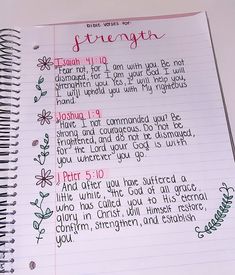 BIBLE VERSES FOR
strength
Isaiah 41:10
Fear not, for I am with you. Be not
dismayed, for I am your God. I will
strengthen you. Yes, I will help you,
I will uphold you with My righteous
hand.
Joshua 1:9
Have I not commanded you? Be
strong and courageous. Do not be
frightened, and do not be dismayed,
for the Lord your God is with
you wherever you go.
1 Peter 5:10
And after you have suffered a
little while, the God of all grace,
who has called you to His eternal
glory in Christ, will Himself restore,
confirm, strengthen, and establish
you.